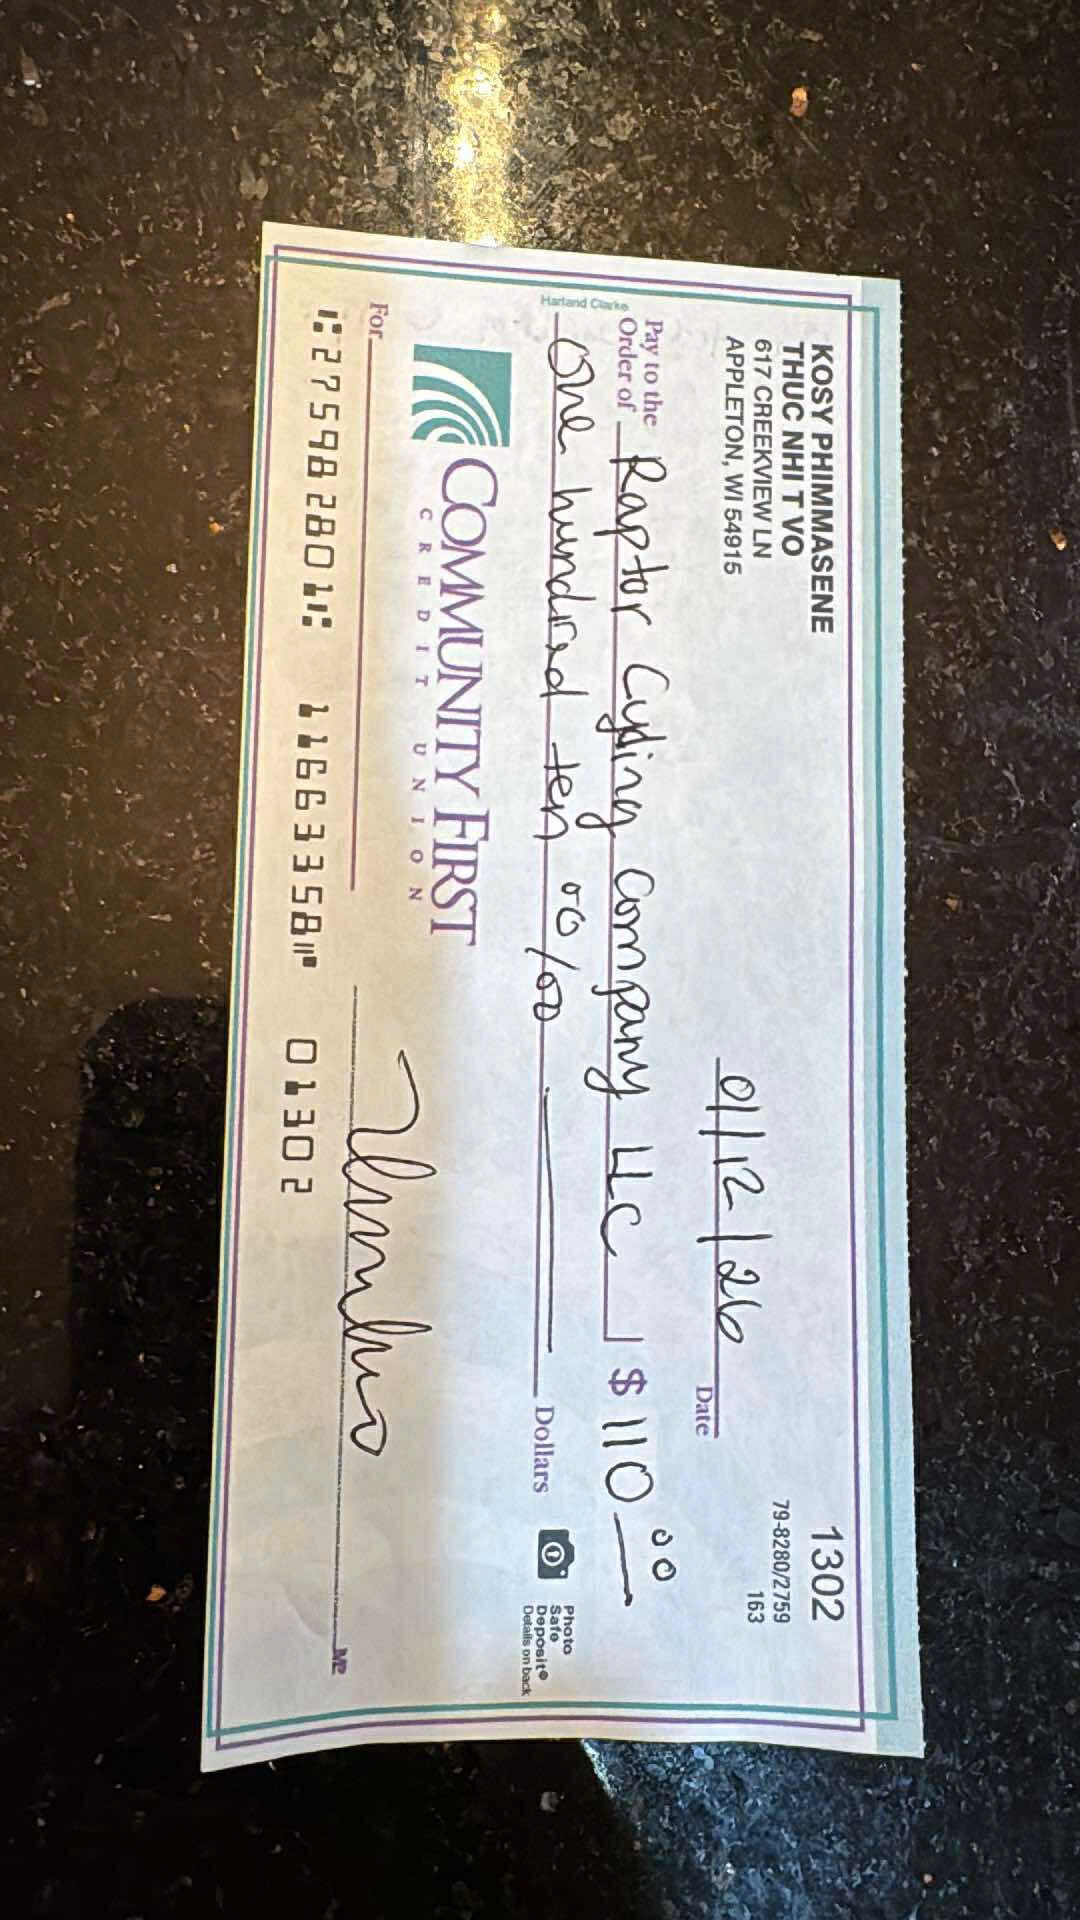 KOSY PHIMMASENE
THUC NHI T VO
617 CREEKVIEW LN
APPLETON, WI 54915
1302
79-8280/2759
163
01/12/26 Date
Pay to the
Order of Raptor Cycling Company LLC $ 110 00
One hundred ten 00/00 Dollars
Photo
Safe
Deposit®
Details on back
Harland Clarke
COMMUNITY FIRST
CREDIT UNION
For
MP
⑆275982801⑆ 11663358⑈ 01302